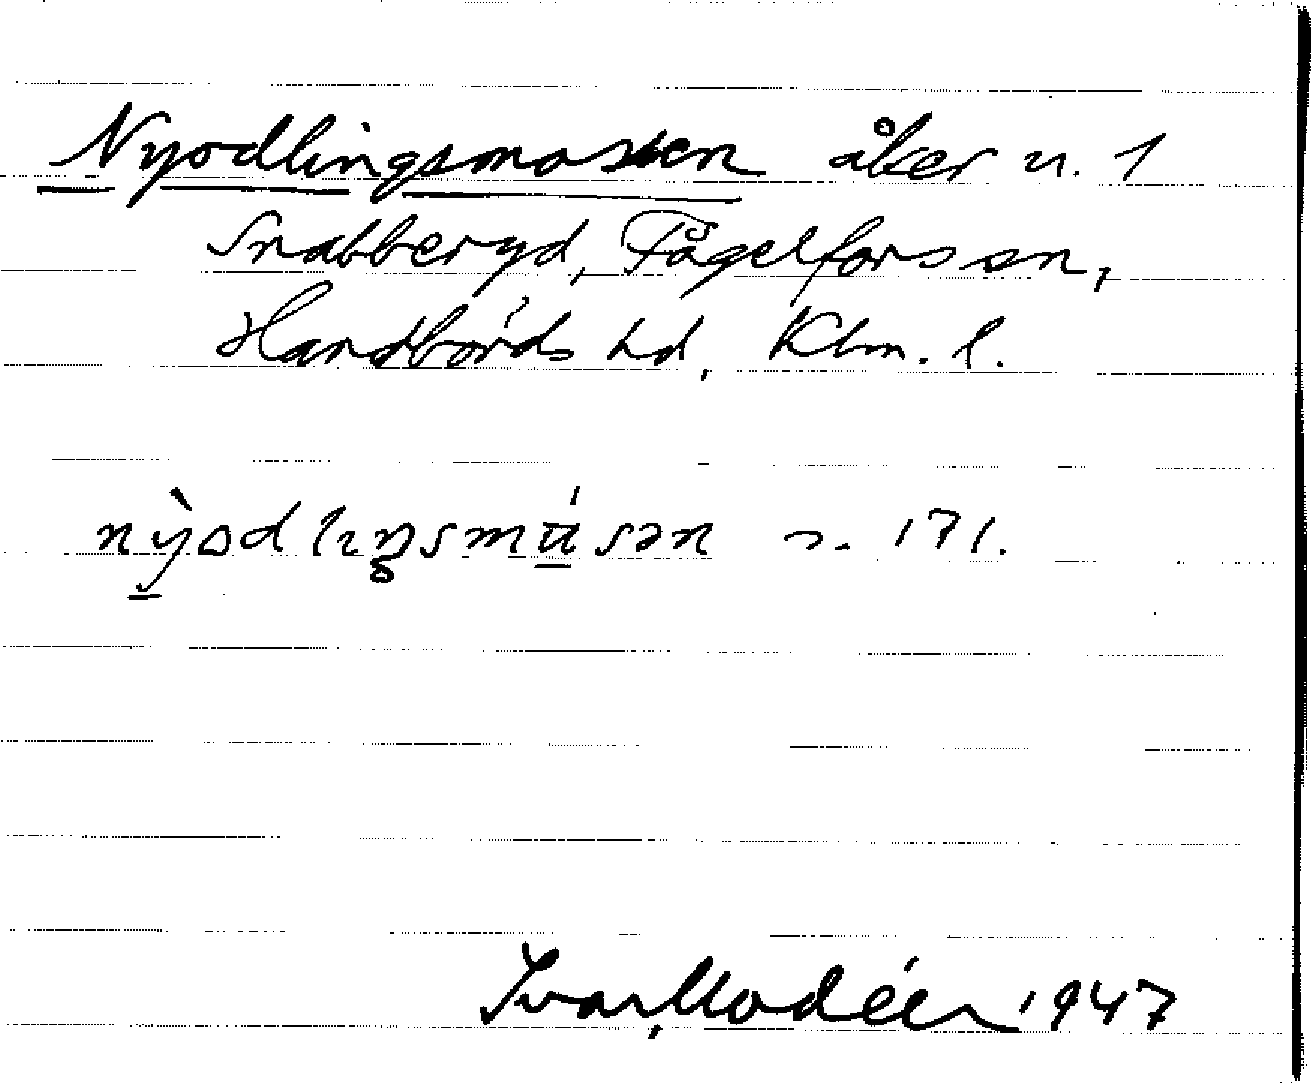 Nyodlingsmossen åker u. 1
Snabberyd, Fågelfors sn,
Handbörds hd, Klm. l.
n. 171.
Ivar Modéer 1947